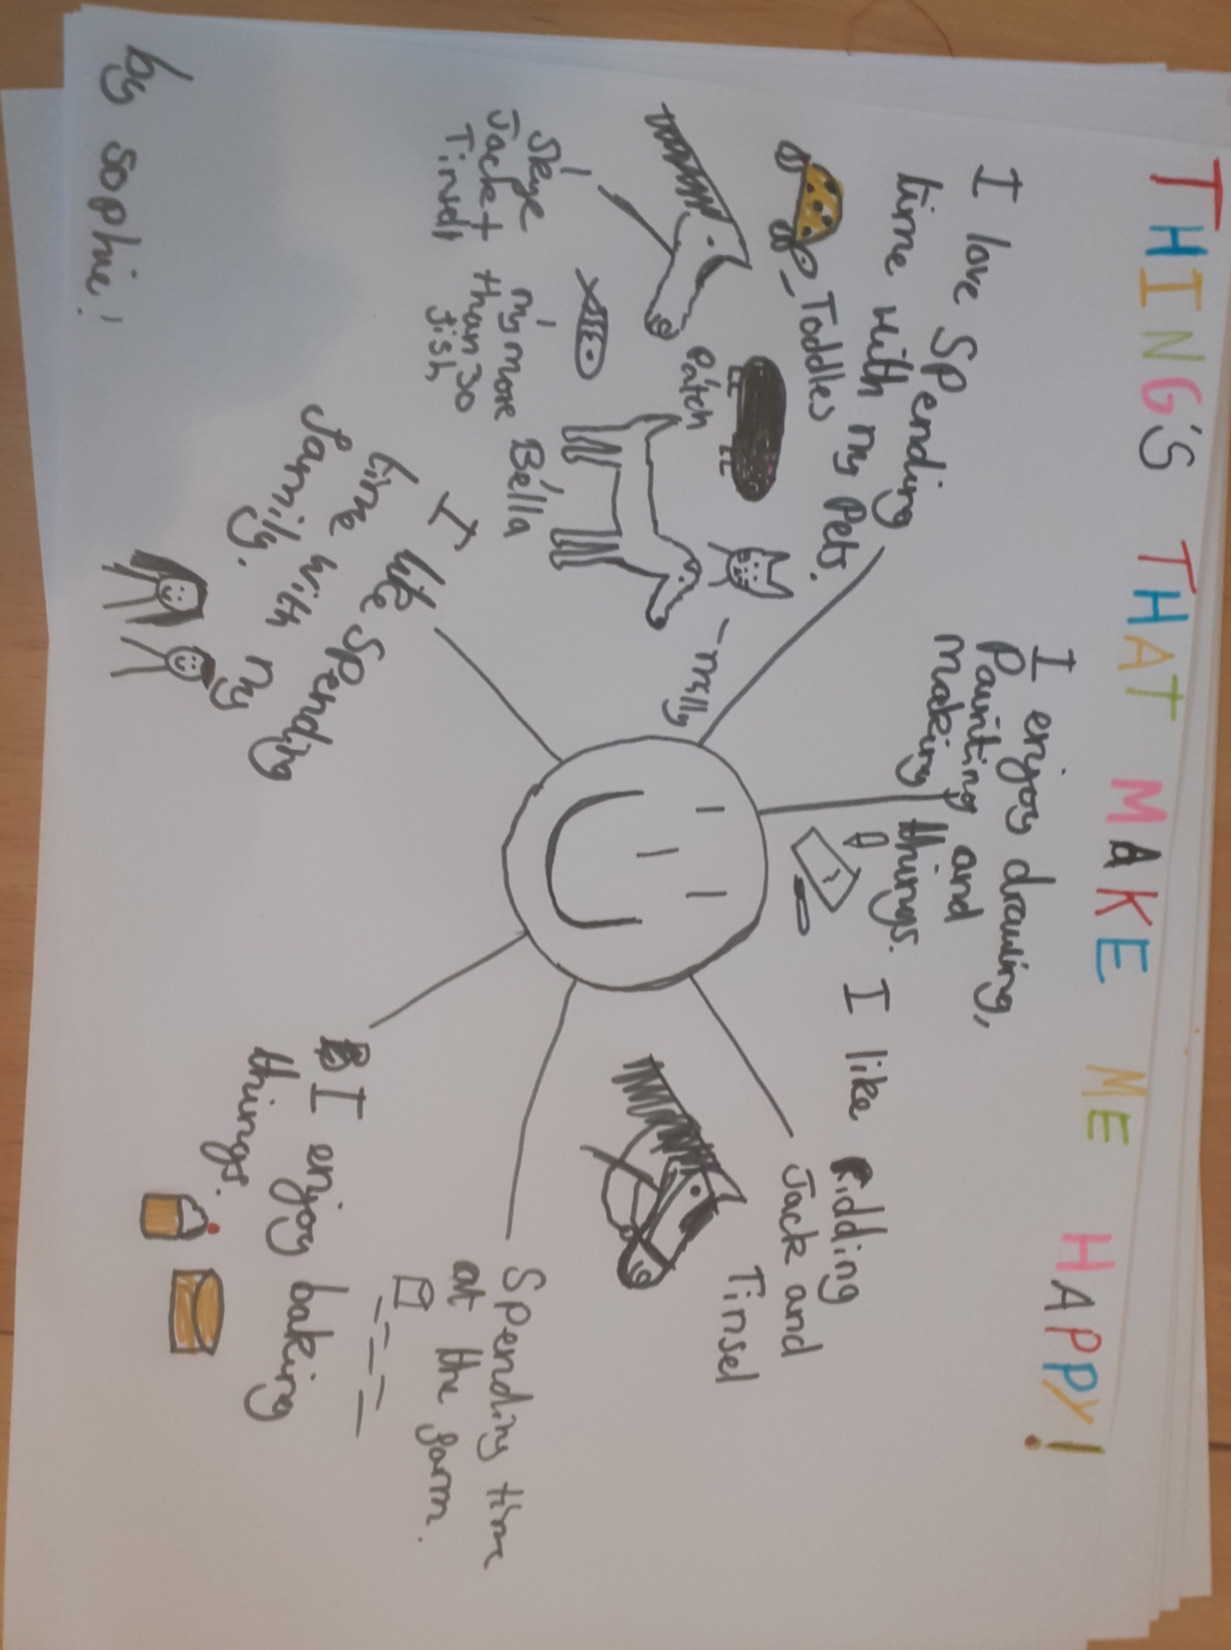 THING'S THAT MAKE ME HAPPY!
I love Spending
time with my Pets.
Toddles
Patch
- milly
Skye
Jack +
Tinsel
my more
than 30
fish
Bella
I enjoy drawing,
Painting and
making things.
I like Ridding
Jack and
Tinsel
Spending time
at the farm.
I enjoy baking
things.
I like Spending
time with my
family.
by sophie!